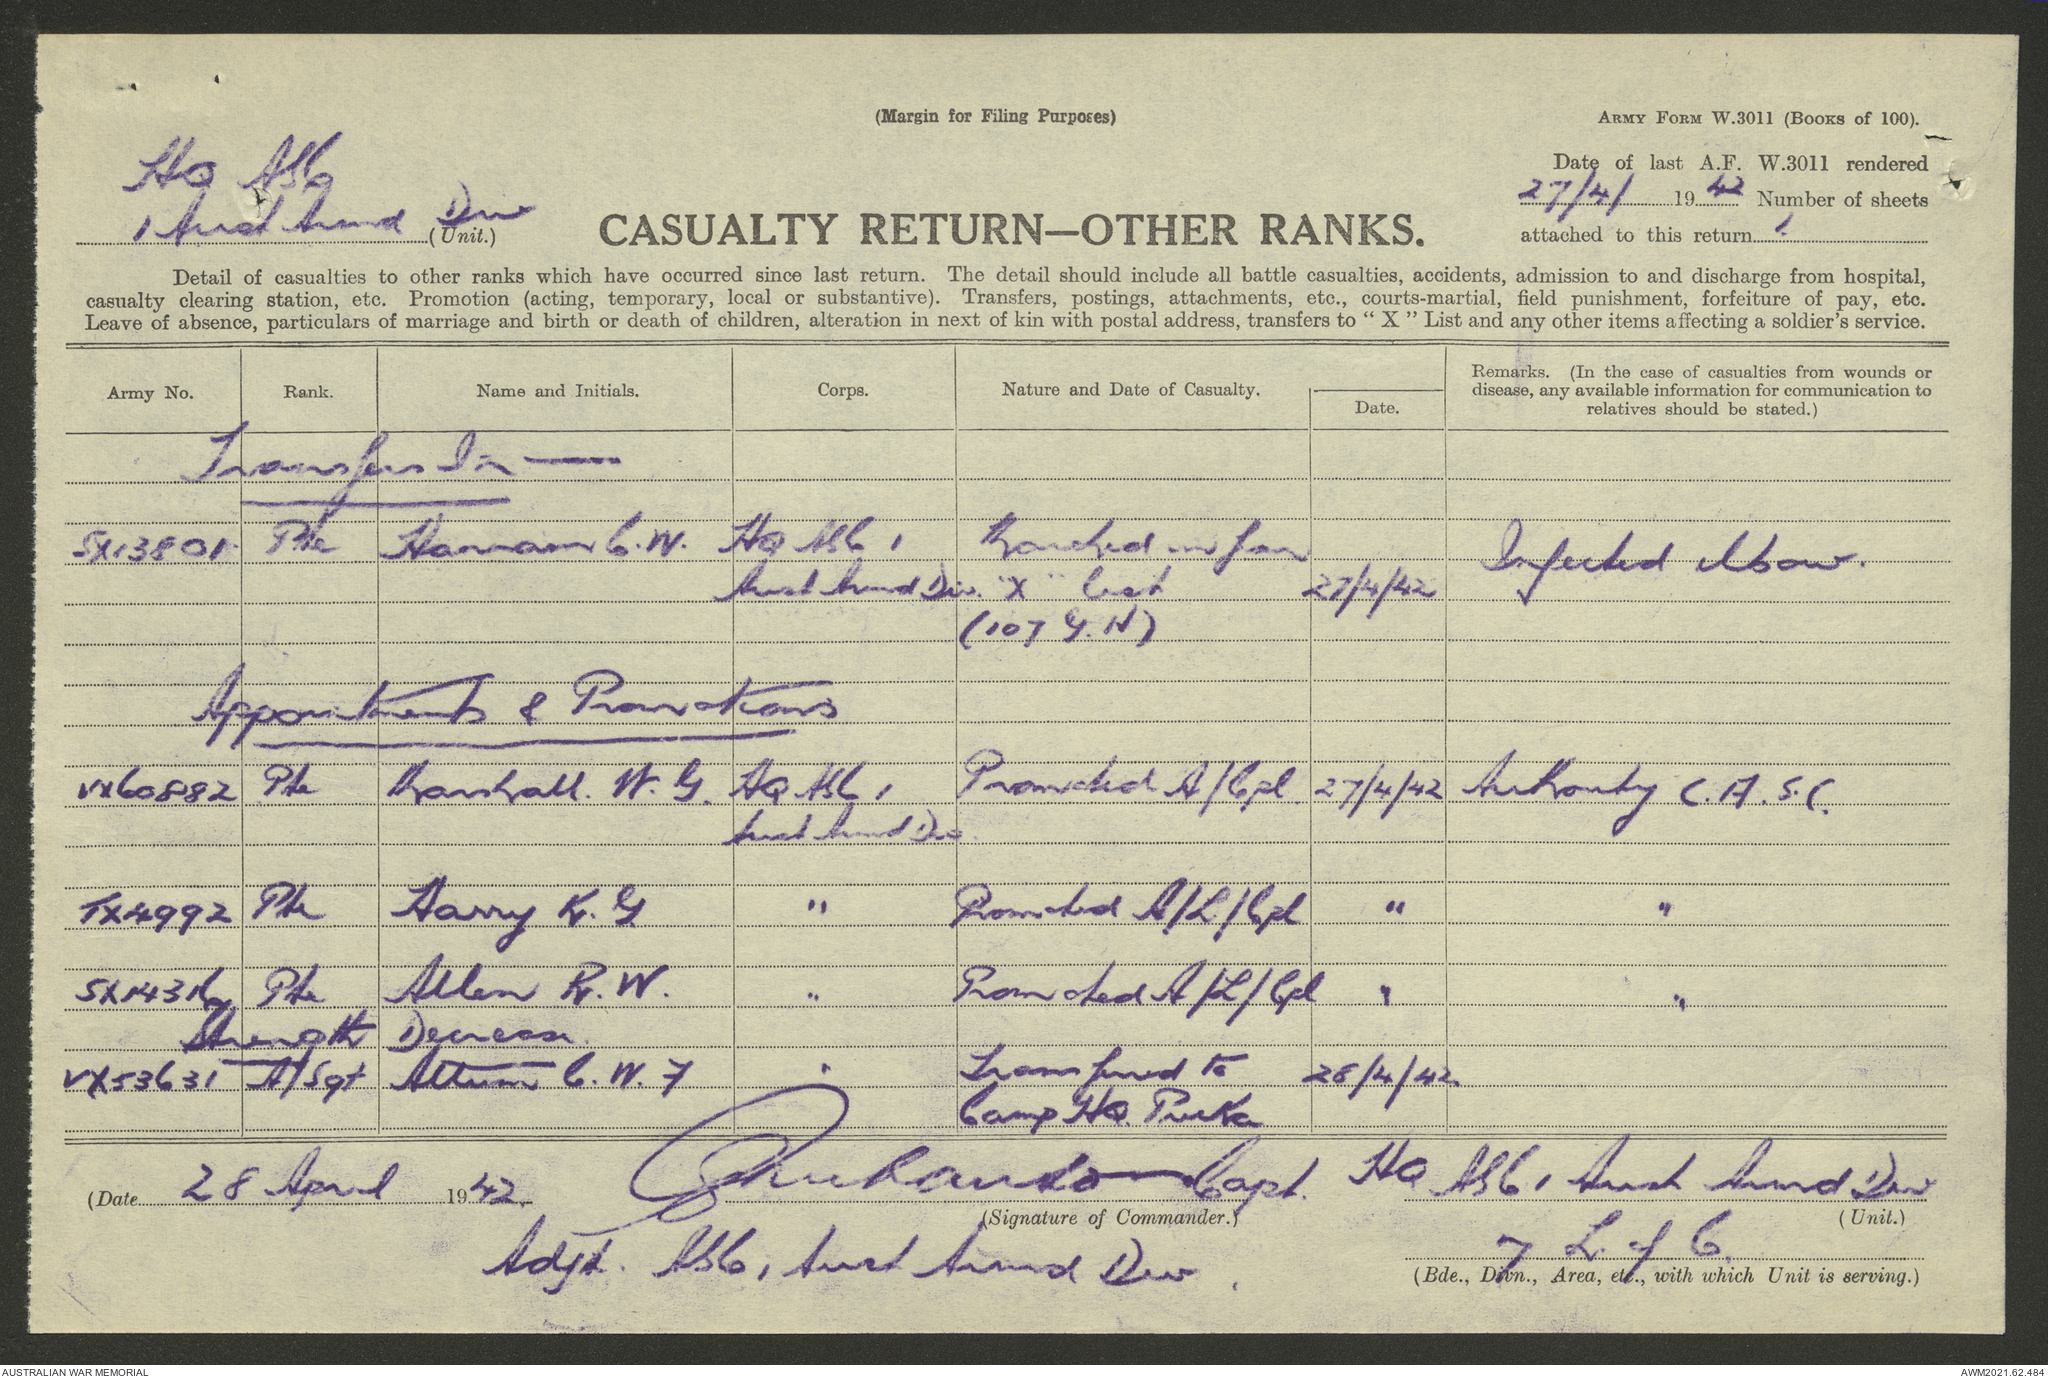 (Margin for Filing Purposes)
ARMY FORM W.3011 (BOOKS of 100).
HQ ASC
1 Aust Armd Div
(Unit.)
CASUALTY RETURN—OTHER RANKS.
Date of last A.F. W.3011 rendered
27/4/ 1942 Number of sheets
attached to this return 1
Detail of casualties to other ranks which have occurred since last return. The detail should include all battle casualties, accidents, admission to and discharge from hospital,
casualty clearing station, etc. Promotion (acting, temporary, local or substantive). Transfers, postings, attachments, etc., courts-martial, field punishment, forfeiture of pay, etc.
Leave of absence, particulars of marriage and birth or death of children, alteration in next of kin with postal address, transfers to "X" List and any other items affecting a soldier's service.
Army No. Rank. Name and Initials. Corps. Nature and Date of Casualty. Date. Remarks. (In the case of casualties from wounds or
disease, any available information for communication to
relatives should be stated.)
Transfers In —
SX13801 Pte Hannam C.W. HQ ASC 1 Marched in from Infected elbow.
Aust Armd Div. "X" List 27/4/42
(107 G.H)
Appointments & Promotions
VX60882 Pte Marshall. W.G. HQ ASC 1 Promoted A/Cpl 27/4/42 Authority C.A.S.C.
Aust Armd Div.
TX4992 Pte Harry K.G " Promoted A/L/Cpl " "
SX14316 Pte Allen R.W. " Promoted A/L/Cpl " "
Strength Decrease.
VX53631 A/Sgt C.W.F " Transferred to 28/4/42
Camp HQ. Pucka
(Date 28 April 1942. Capt. HQ ASC 1 Aust Armd Div
(Signature of Commander.) (Unit.)
Adjt. ASC 1 Aust Armd Div. 7 L. of C.
(Bde., Divn., Area, etc., with which Unit is serving.)
AUSTRALIAN WAR MEMORIAL AWM2021.62.484